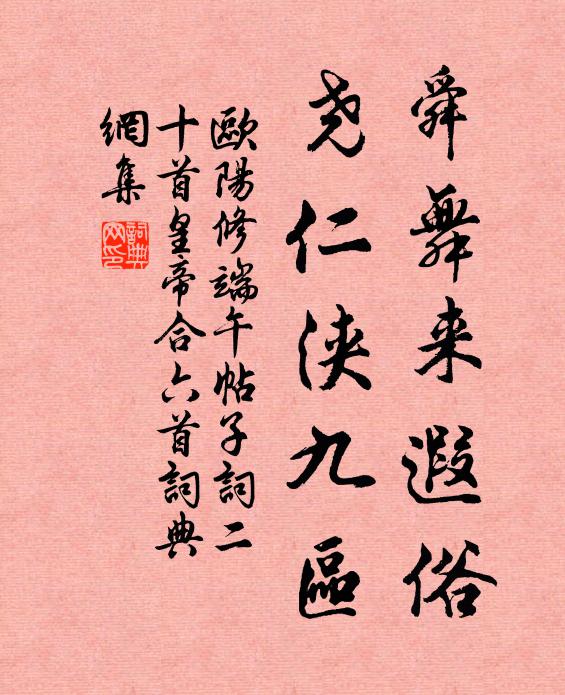 舜舞来遐俗
尧仁浹九區
歐陽修端午帖子詞二
十首皇帝合六首詞典
網集
詞典
网印